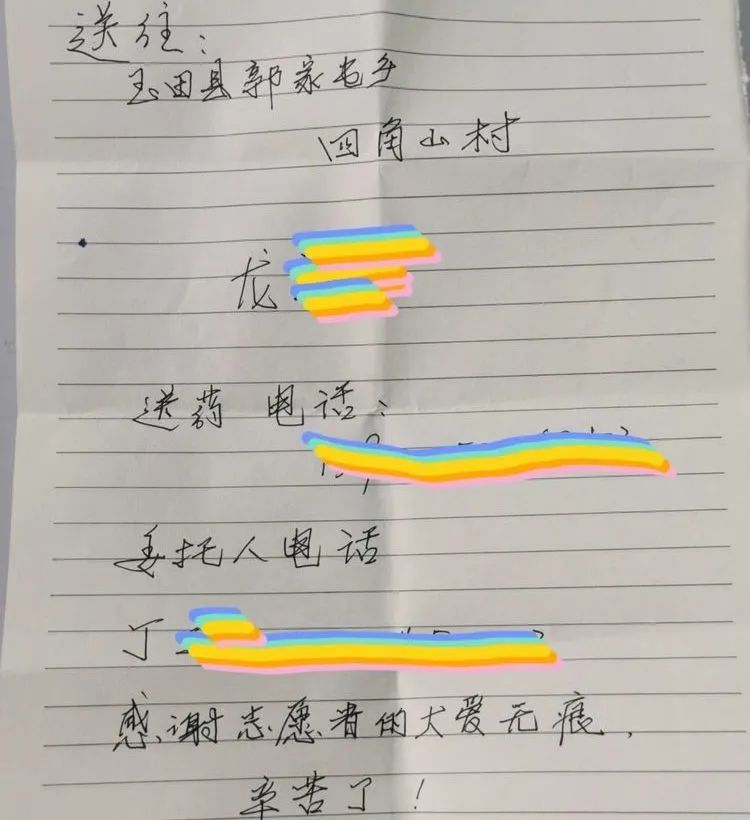 送往：
玉田县郭家屯乡
四角山村
龙
送药 电话：
委托人电话
丁
感谢志愿者的大爱无痕，
辛苦了！